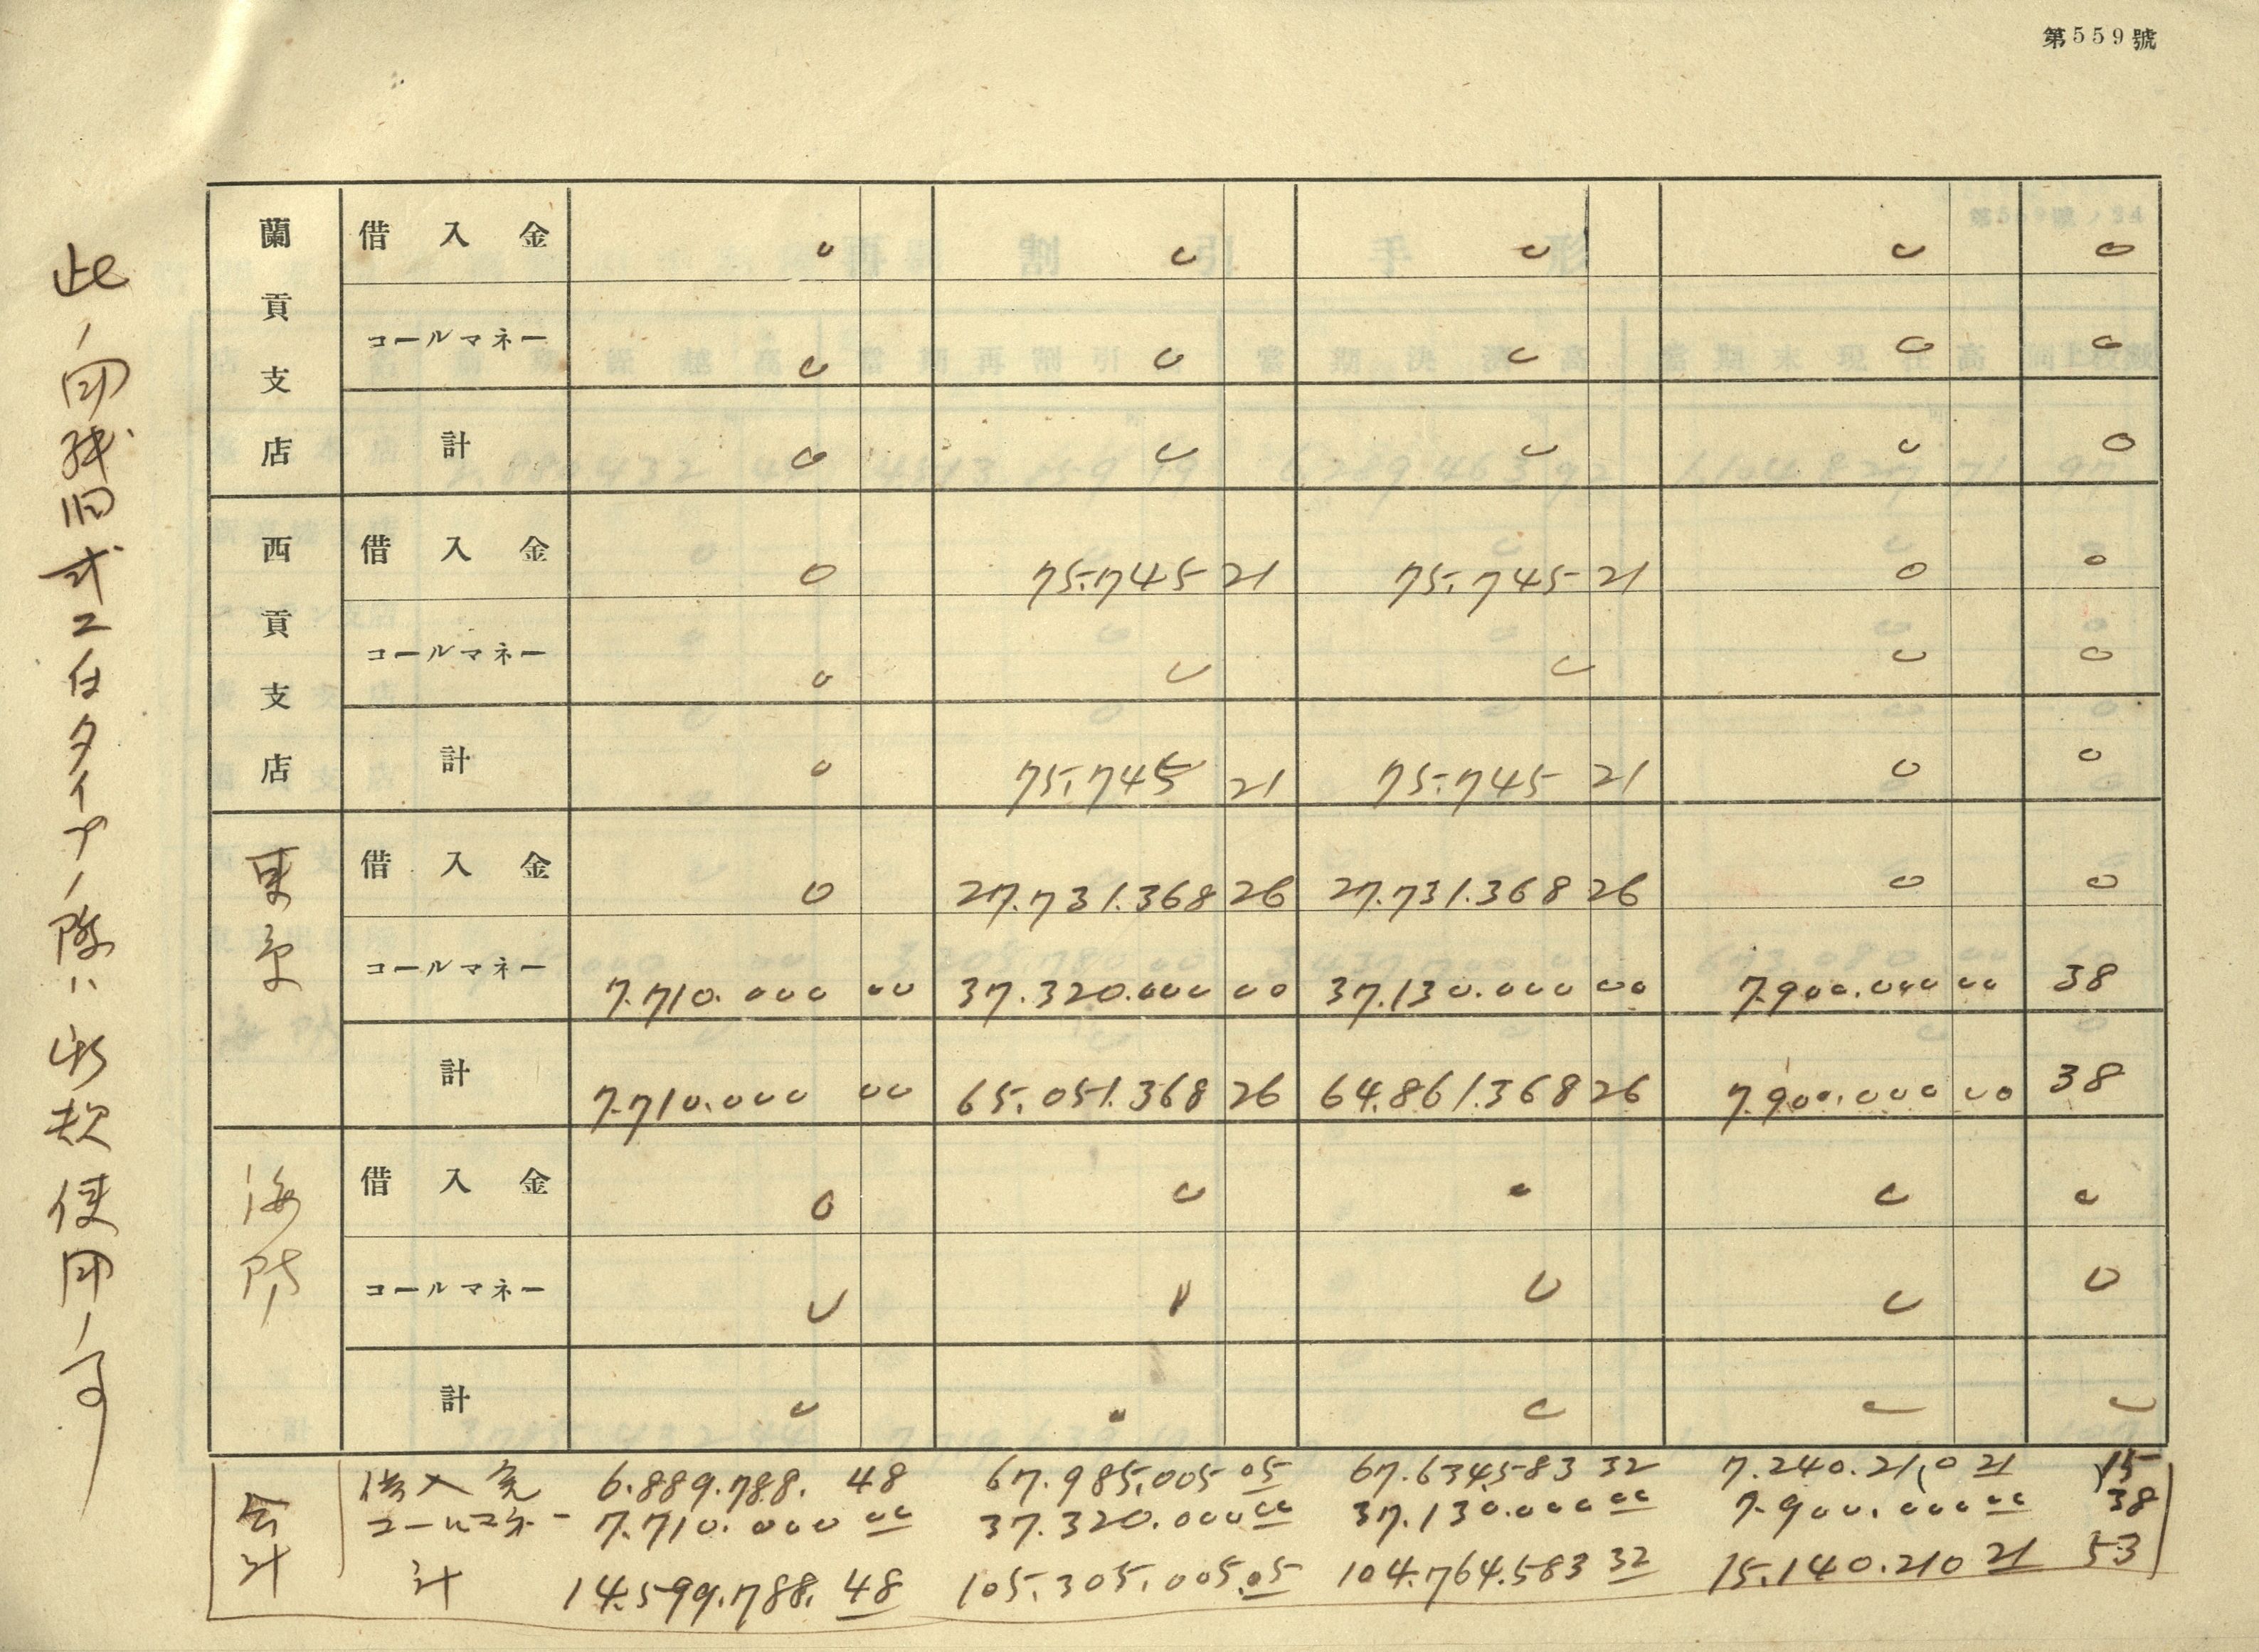 第559號
蘭貢支店 借入金 0 0 0 0 0
コールマネー 0 0 0 0 0
計 0 0 0 0 0
西貢支店 借入金 0 75.745 21 75.745 21 0 0
コールマネー 0 0 0 0 0
計 0 75.745 21 75.745 21 0 0
東京 借入金 0 27.731.368 26 27.731.368 26 0 0
コールマネー 7.710.000 00 37.320.000 00 37.130.000 00 7.900.000 00 38
計 7.710.000 00 65.051.368 26 64.861.368 26 7.900.000 00 38
海防 借入金 0 0 0 0 0
コールマネー 0 0 0 0
計 0 0 0 0
合計 借入金 6.889.788. 48 67.985.005 05 67.634.583 32 7.240.210 21 15
コールマネー 7.710.000 00 37.320.000 00 37.130.000 00 7.900.000 00 38
計 14.599.788. 48 105.305.005.05 104.764.583 32 15.140.210 21 53
此ノ用紙旧式ニ付タイプノ際ハ新 使用ノ事